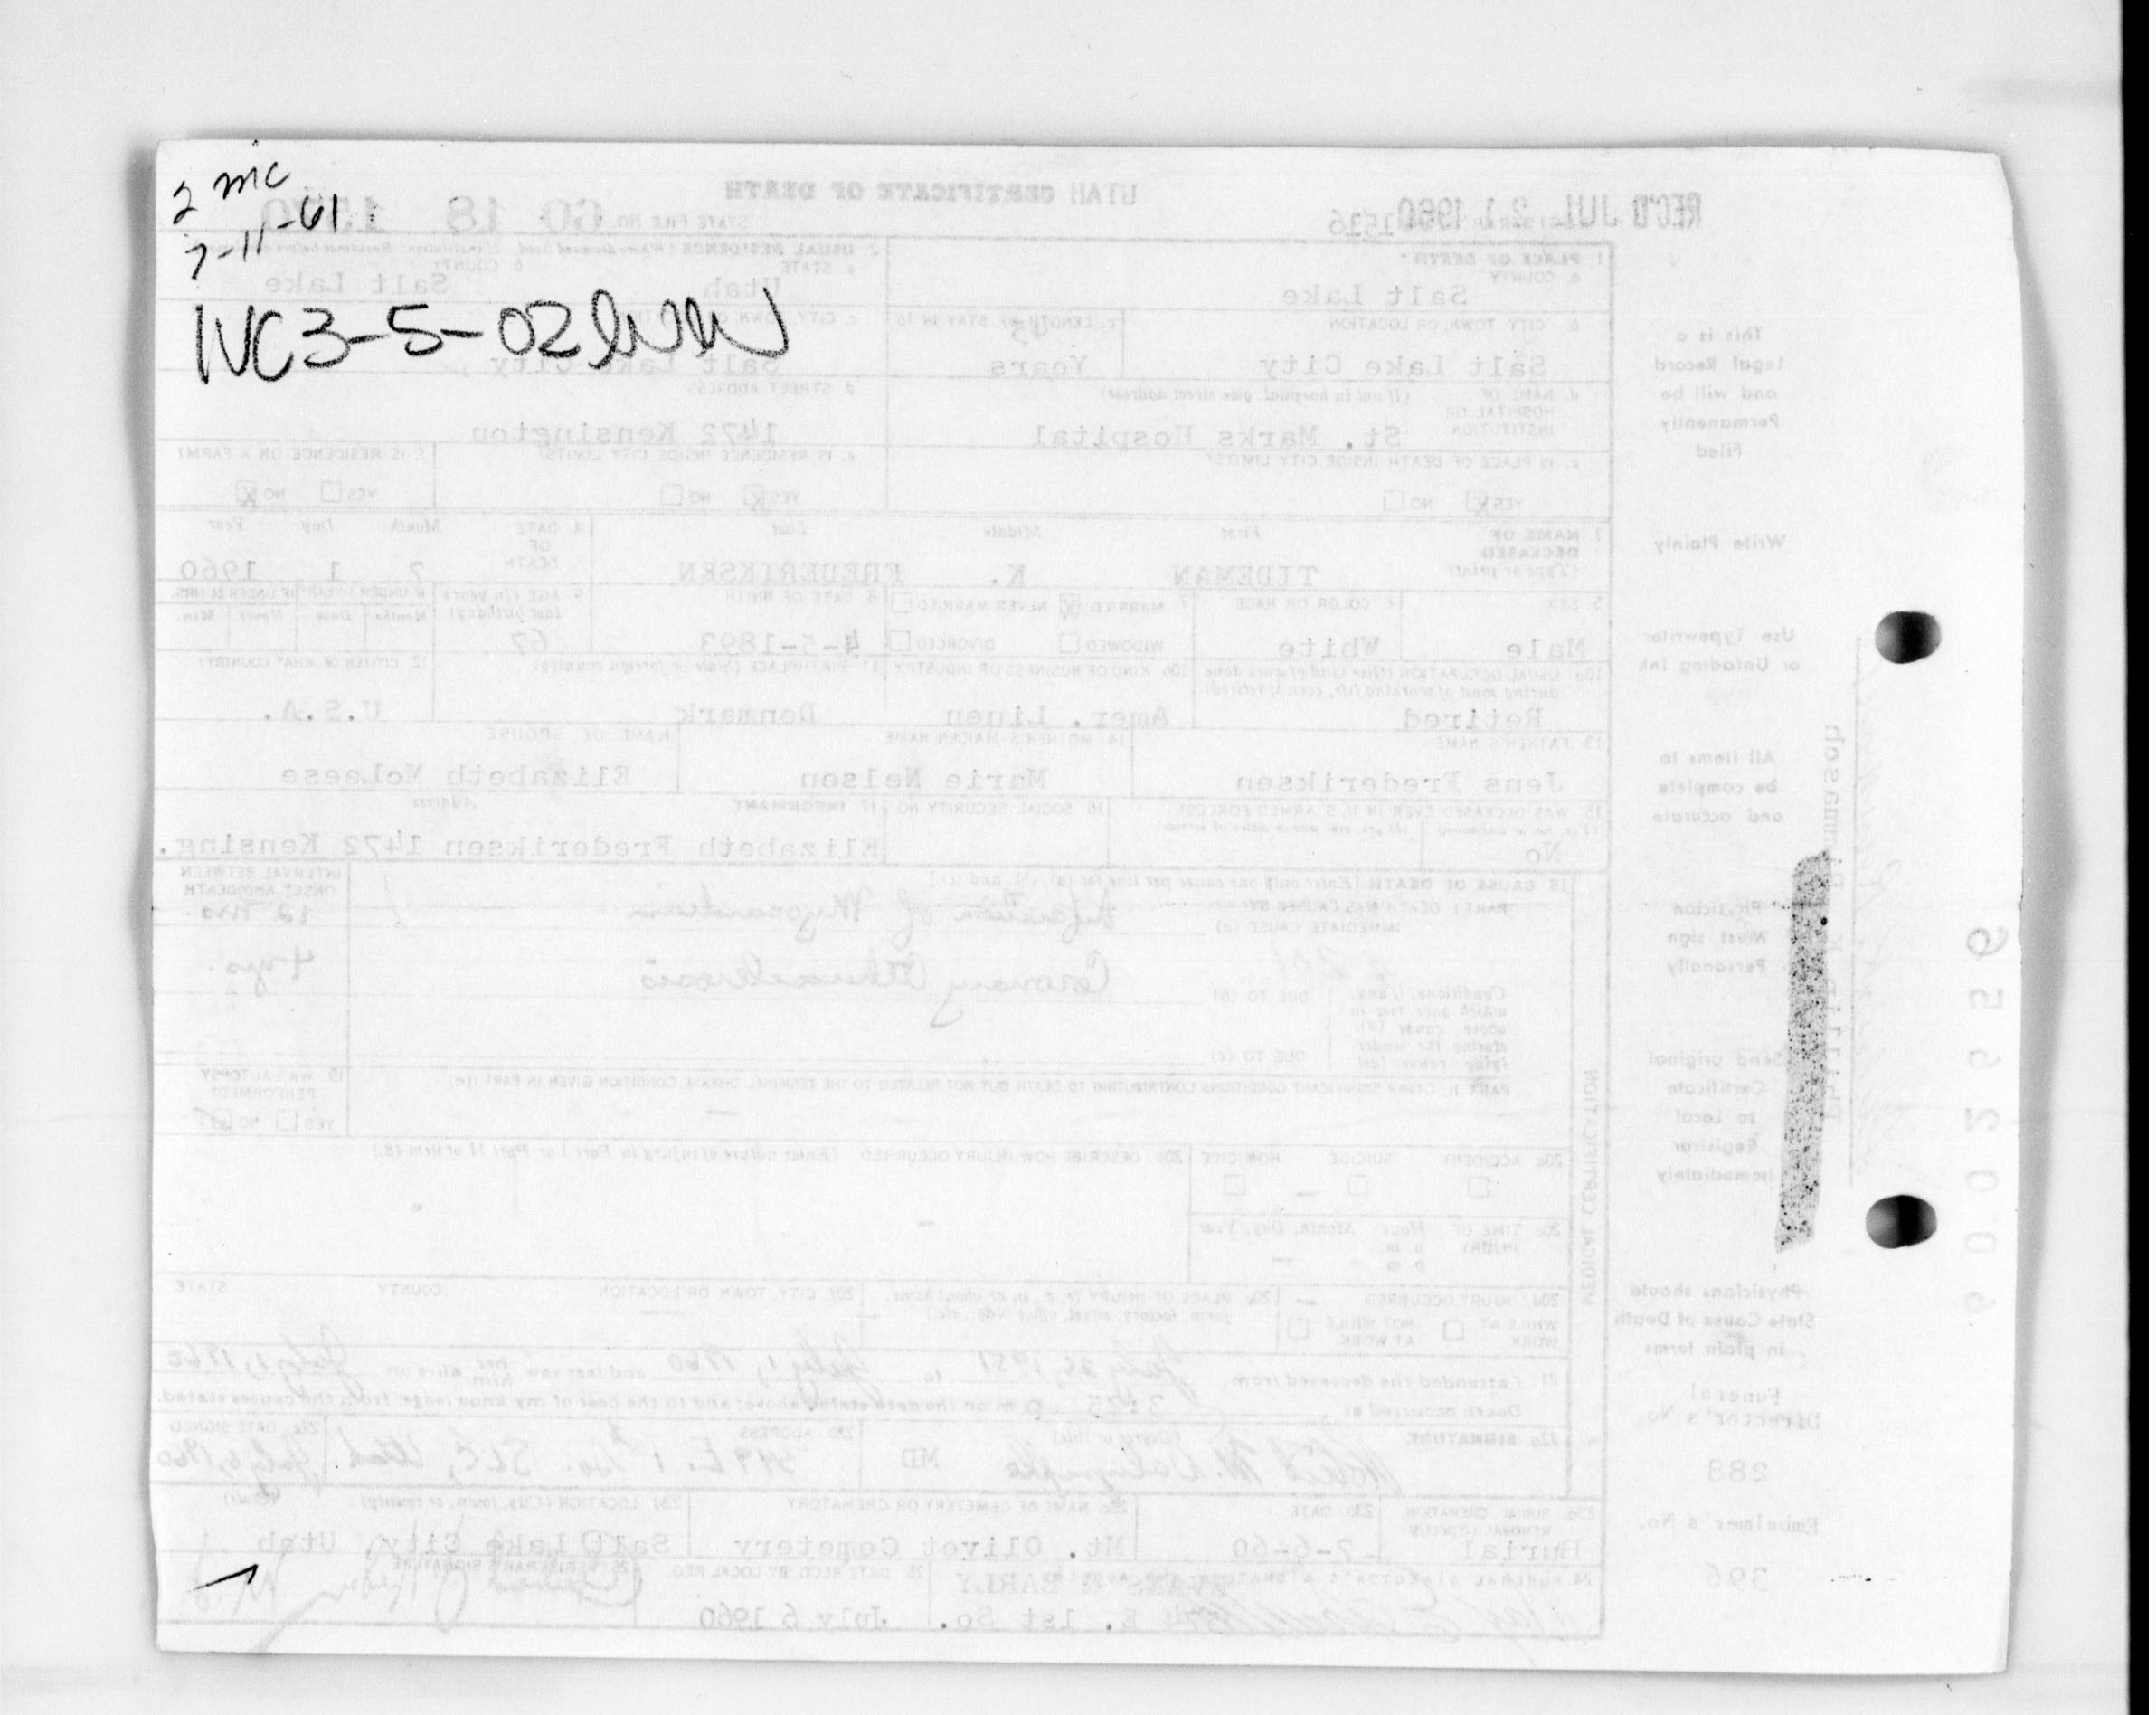 2 mc
7-11-61
1VC3-5-02
REC'D JUL 21 1960
UTAH CERTIFICATE OF DEATH
STATE FILE NO. 60 18
1. PLACE OF DEATH
a. COUNTY
Salt Lake
2. USUAL RESIDENCE
a. STATE
Utah
b. COUNTY
Salt Lake
b. CITY, TOWN, OR LOCATION
Salt Lake City
c. LENGTH OF STAY IN 1b
Years
Salt Lake City
d. NAME OF HOSPITAL OR INSTITUTION
(If not in hospital, give street address)
St. Marks Hospital
d. STREET ADDRESS
1472 Kensington
e. IS PLACE OF DEATH INSIDE CITY LIMITS?
YES NO
e. IS RESIDENCE INSIDE CITY LIMITS?
YES NO
f. IS RESIDENCE ON A FARM?
YES NO
3. NAME OF DECEASED
(Type or print)
First Middle Last
TIDEMAN K. FREDERIKSEN
4. DATE OF DEATH
Month Day Year
7 1 1960
5. SEX
Male
6. COLOR OR RACE
White
7. MARRIED NEVER MARRIED
WIDOWED DIVORCED
8. DATE OF BIRTH
4-5-1893
9. AGE (In years last birthday)
67
10a. USUAL OCCUPATION (Give kind of work done during most of working life, even if retired)
Retired
10b. KIND OF BUSINESS OR INDUSTRY
Amer. Linen
11. BIRTHPLACE (State or foreign country)
Denmark
12. CITIZEN OF WHAT COUNTRY?
U.S.A.
13. FATHER'S NAME
Jens Frederiksen
14. MOTHER'S MAIDEN NAME
Marie Nelsen
NAME OF SPOUSE
Elizabeth McLeese
15. WAS DECEASED EVER IN U.S. ARMED FORCES?
No
16. SOCIAL SECURITY NO.
17. INFORMANT Address
Elizabeth Frederiksen 1472 Kensing.
18. CAUSE OF DEATH [Enter only one cause per line for (a), (b), and (c).]
PART I. DEATH WAS CAUSED BY:
IMMEDIATE CAUSE (a)
Infarction of Myocardium
INTERVAL BETWEEN ONSET AND DEATH
12 mo.
Conditions, if any, which gave rise to above cause (a), stating the underlying cause last
DUE TO (b)
Coronary Atherosclerosis
4 yrs.
DUE TO (c)
PART II. OTHER SIGNIFICANT CONDITIONS CONTRIBUTING TO DEATH BUT NOT RELATED TO THE TERMINAL DISEASE CONDITION GIVEN IN PART I(a)
19. WAS AUTOPSY PERFORMED?
YES NO
20a. ACCIDENT SUICIDE HOMICIDE
20b. DESCRIBE HOW INJURY OCCURRED (Enter nature of injury in Part I or Part II of item 18.)
20c. TIME OF INJURY Hour Month, Day, Year
a.m.
p.m.
20d. INJURY OCCURRED
WHILE AT WORK NOT WHILE AT WORK
20e. PLACE OF INJURY (e.g., in or about home, farm, factory, street, office bldg., etc.)
20f. CITY, TOWN, OR LOCATION COUNTY STATE
21. I attended the deceased from to July 1, 1960 and last saw him alive on July 1, 1960
Death occurred at p m on the date stated above; and to the best of my knowledge, from the causes stated.
22a. SIGNATURE (Degree or title)
MD
22b. ADDRESS
SLC, Utah
22c. DATE SIGNED
July 6, 1960
23a. BURIAL, CREMATION, REMOVAL (Specify)
Burial
23b. DATE
7-6-60
23c. NAME OF CEMETERY OR CREMATORY
Mt. Olivet Cemetery
23d. LOCATION (City, town, or county) (State)
Salt Lake City, Utah
24. FUNERAL DIRECTOR'S SIGNATURE
EVANS & EARLY
574 E. 1st So.
25. DATE REC'D BY LOCAL REG.
July 6 1960
26. REGISTRAR'S SIGNATURE
MEDICAL CERTIFICATION
This is a
Legal Record
and will be
Permanently
Filed
Write Plainly
Use Typewriter
or Unfading Ink
All items to
be complete
and accurate
Physician
Must sign
Personally
Send original
Certificate
to Local
Registrar
Immediately
Physicians should
State Cause of Death
in plain terms
Funeral
Director's No.
288
Embalmer's No.
396